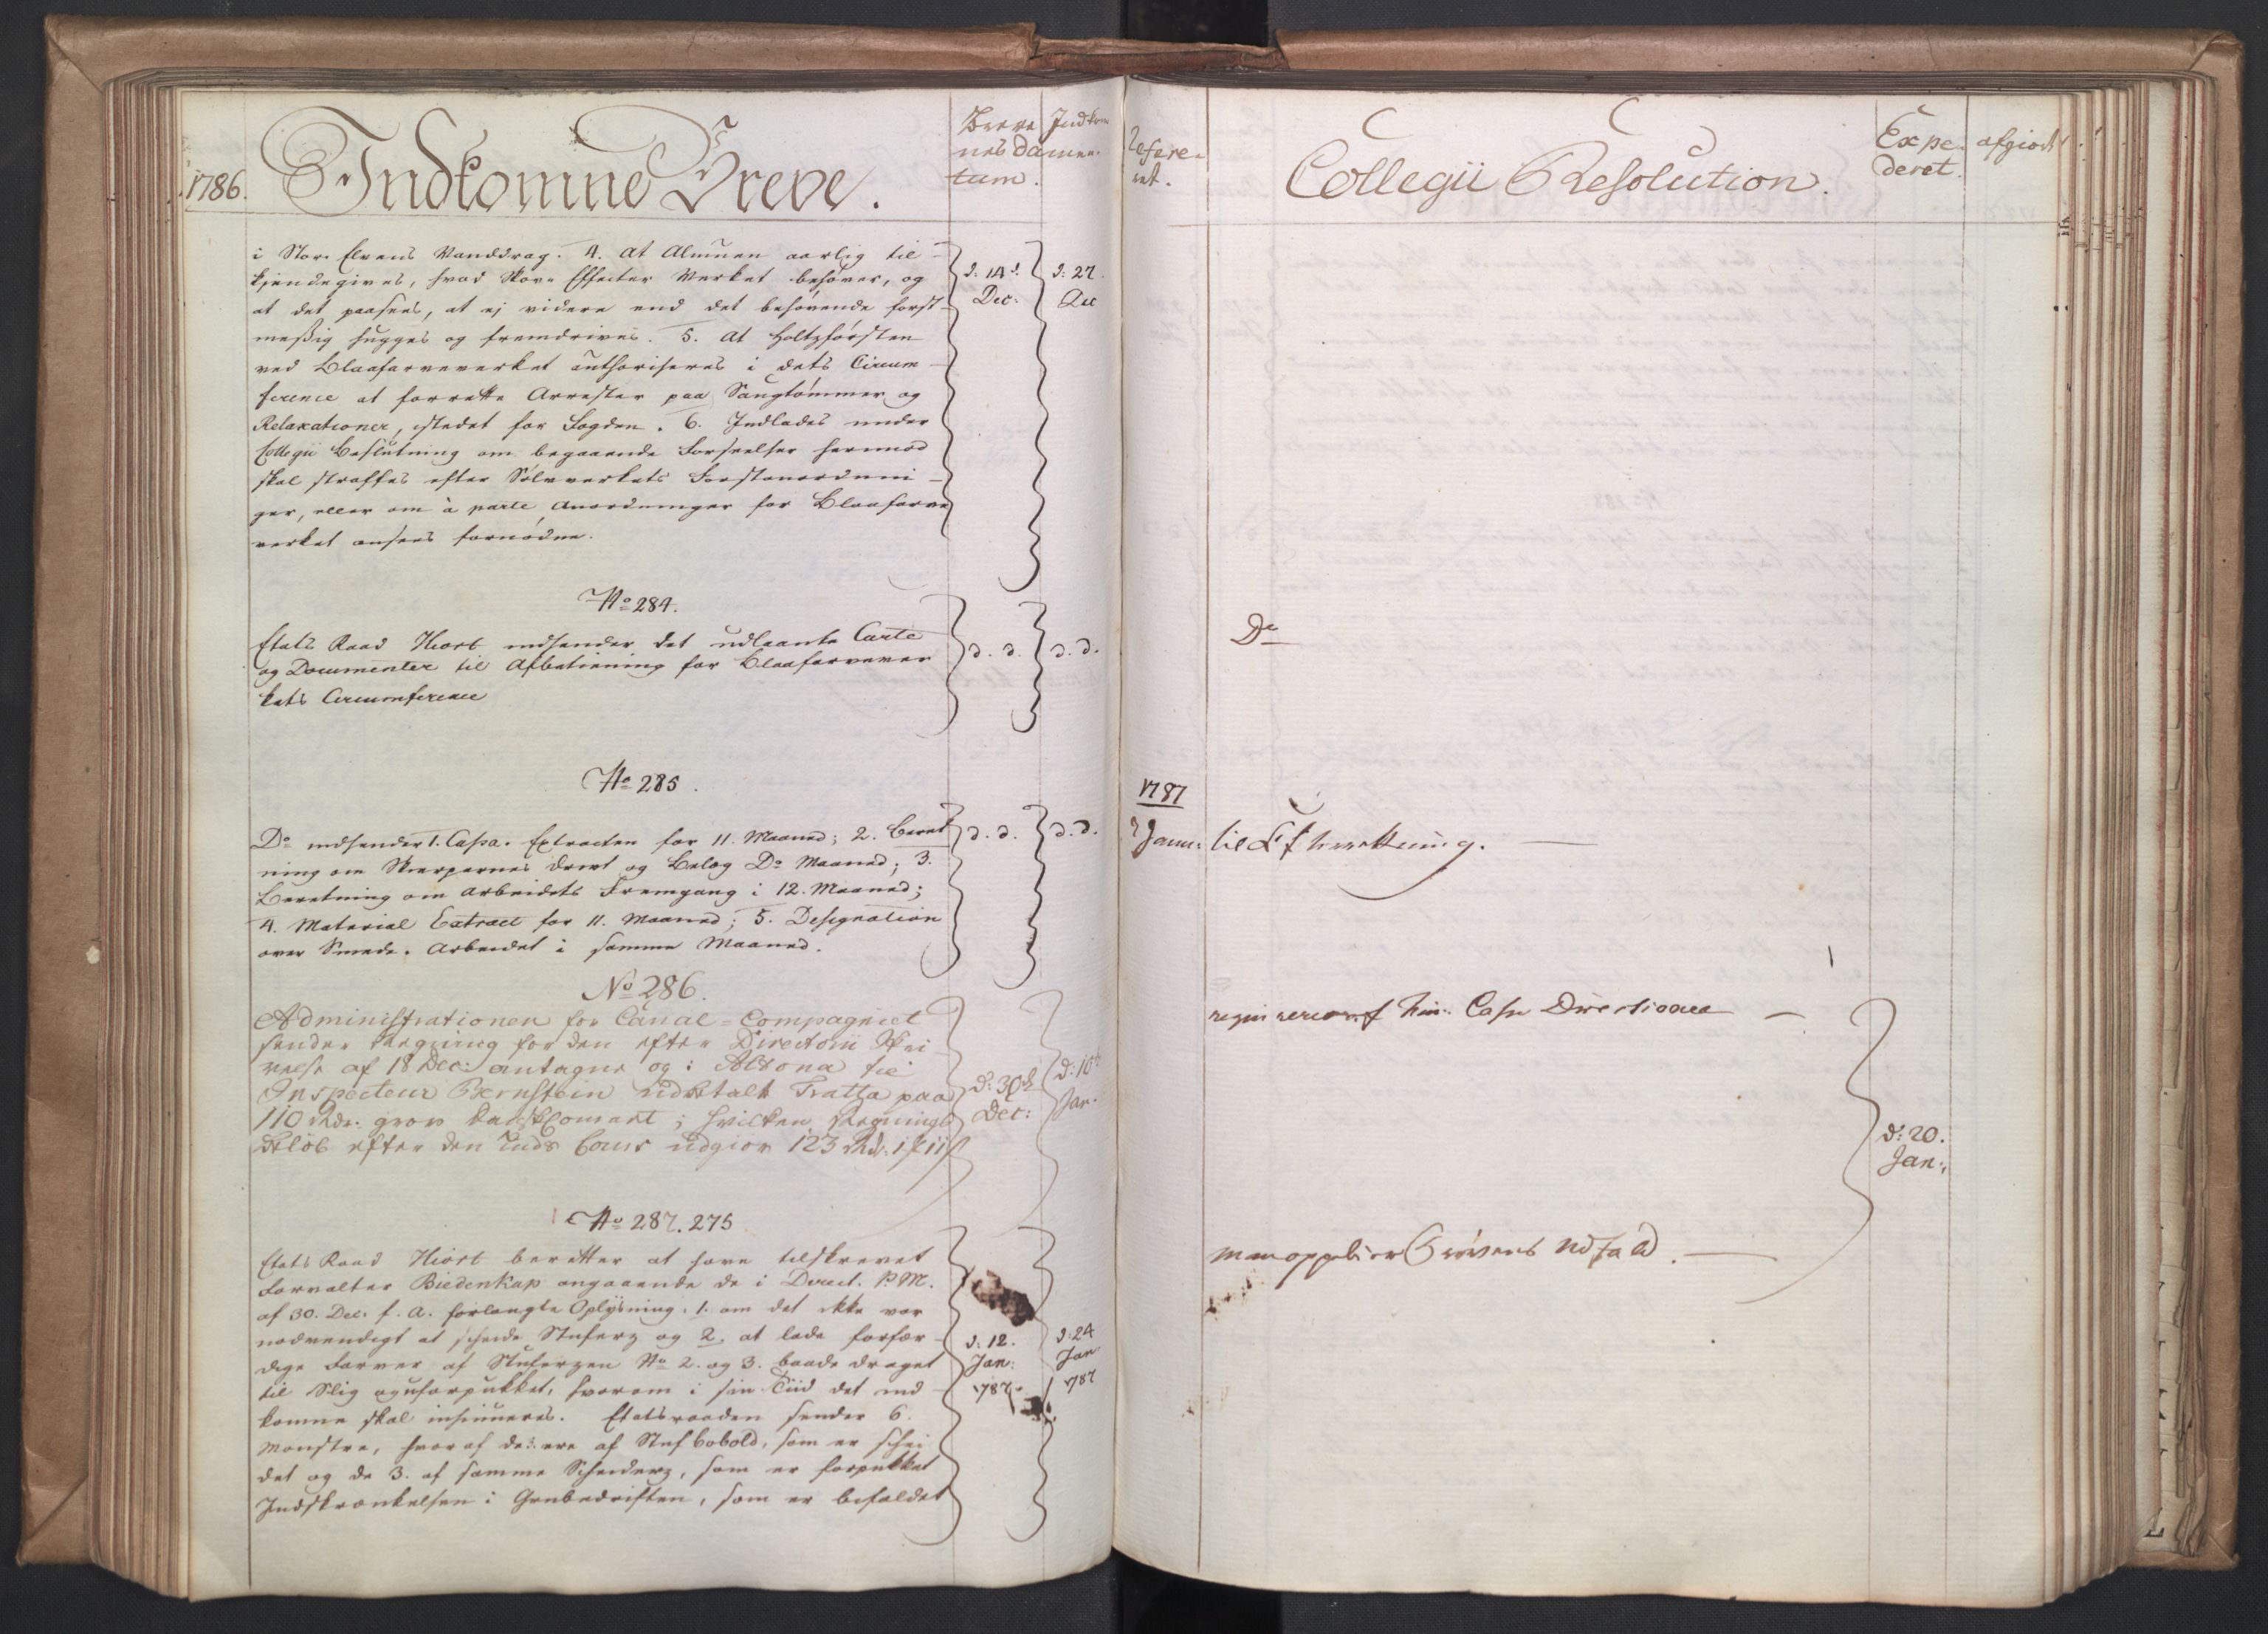 1786.
Indkomne Breve.
Breve
nes Da
tum.
Indkom
men.
i Stor Elvens Vanddrag. 4. At Almuen aarlig til-
kjendegives, hvad Skov-Effecter Verket behøver, og
at det paasees, at ej videre end det behøvende forst-
meßig hugges og fremdrives. 5. At Holtzførsten
ved Blaafarveverket authoriseres i dets Circum-
ference at forrette Arrester paa Saugtømmer og
Relaxationer, istedet for Fogden. 6. Indlades under
Collegii Beslutning om begaaende Forseelser herimod
skal straffes efter Sølvverkets Forstanordnin-
ger, eller om à parte Anordninger for Blaafarve
verket ansees fornødne.
d: 14d.
Dec.
d: 27.
Dec
No 284.
Etats Raad Hiort indsender det udlaante Carte
og Documenter til Afbetiening for Blaafarvever
kets Circumference
d. d.
d. d.
No 285.
Do indsender 1. Cassa-Extracten for 11. Maaned; 2. Beret
ning om Skierpernes Drivt og Belæg Do Maaned; 3.
Beretning om Arbeidets Fremgang i 12. Maaned;
4. Material Extract for 11. Maaned; 5. Designation
over Smede-Arbeidet i samme Maaned.
d. d.
d. d.
No 286.
Administrationen for Canal-Compagniet
sender Regning for den efter Directorii Skri
velse af 18 Dec: antagne og i Altona til
Inspecteur Bernstein udbetalt Tratta paa
110 Rdr. grov dansk Courant; hvilken Regnings
Beløb efter den Tids Cours udgiør 123 Rdr. 1
d: 30d
Dec:
d: 10
Jan.
No 287. 275
Etats Raad Hiort beretter at have tilskrevet
Forvalter Biedenkap angaaende de i Direct. P.M.
af 30. Dec. f. A. forlangte Oplysning. 1. om det ikke var
nødvendigt at scheide Stuferz og 2. at lade forfær-
dige Farver af Stuferzen No 2. og 3. baade draget
til Slig og uforpukket, hvorom i sin Tiid det ind-
komne skal insinueres. Etatsraaden sender 6.
Monstre, hvoraf de 3. ere af Stuf Cobold, som er schei
det og de 3. af samme Scheiderz, som er forpukket
Indskrænkelsen i Grubedriften, som er befaldet
d: 12.
Jan:
1787.
d: 24
Jan
1787
Refere-
ret.
Collegii Resolution.
Expe-
deret.
afgiort
Do
1787
Janu:
til Efterretning.
Casse Directionen
d: 20.
Jan:
man oppebier Prøvens Udfald.